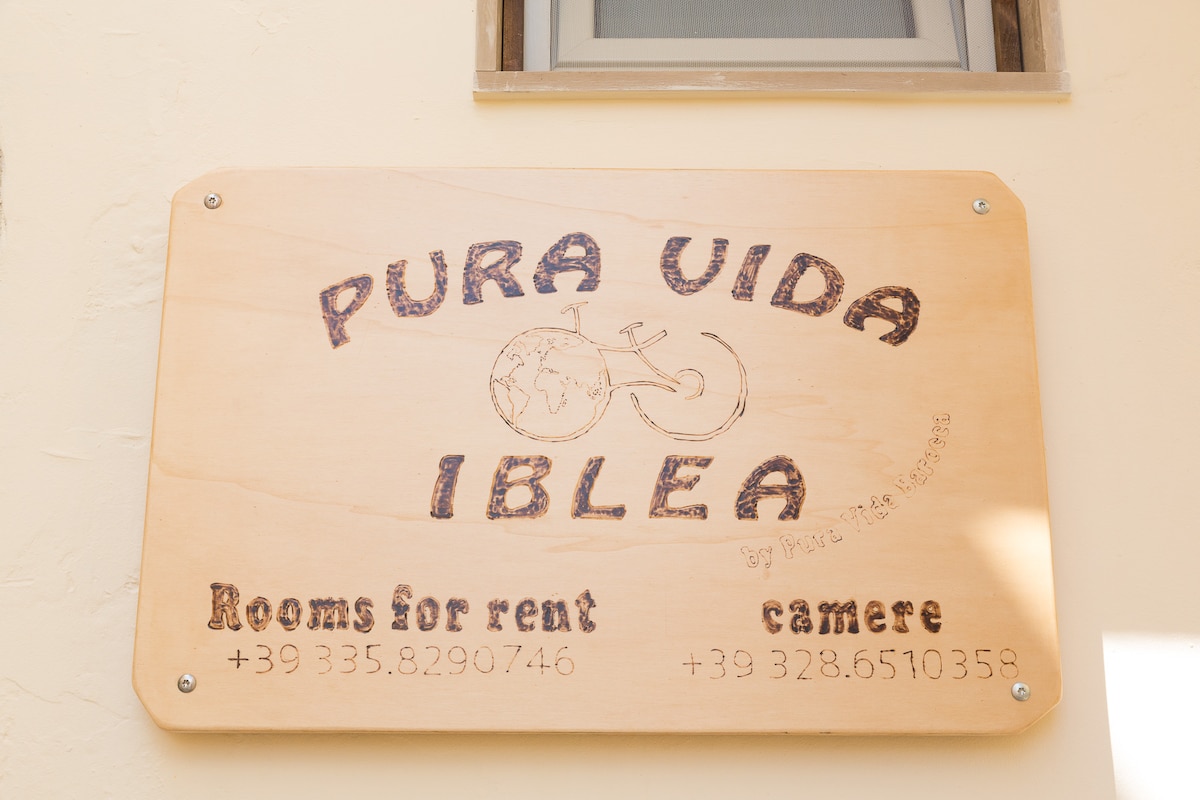 PURA VIDA
IBLEA
by Pura Vida Barocca
Rooms for rent
+39 335.8290746
camere
+39 328.6510358